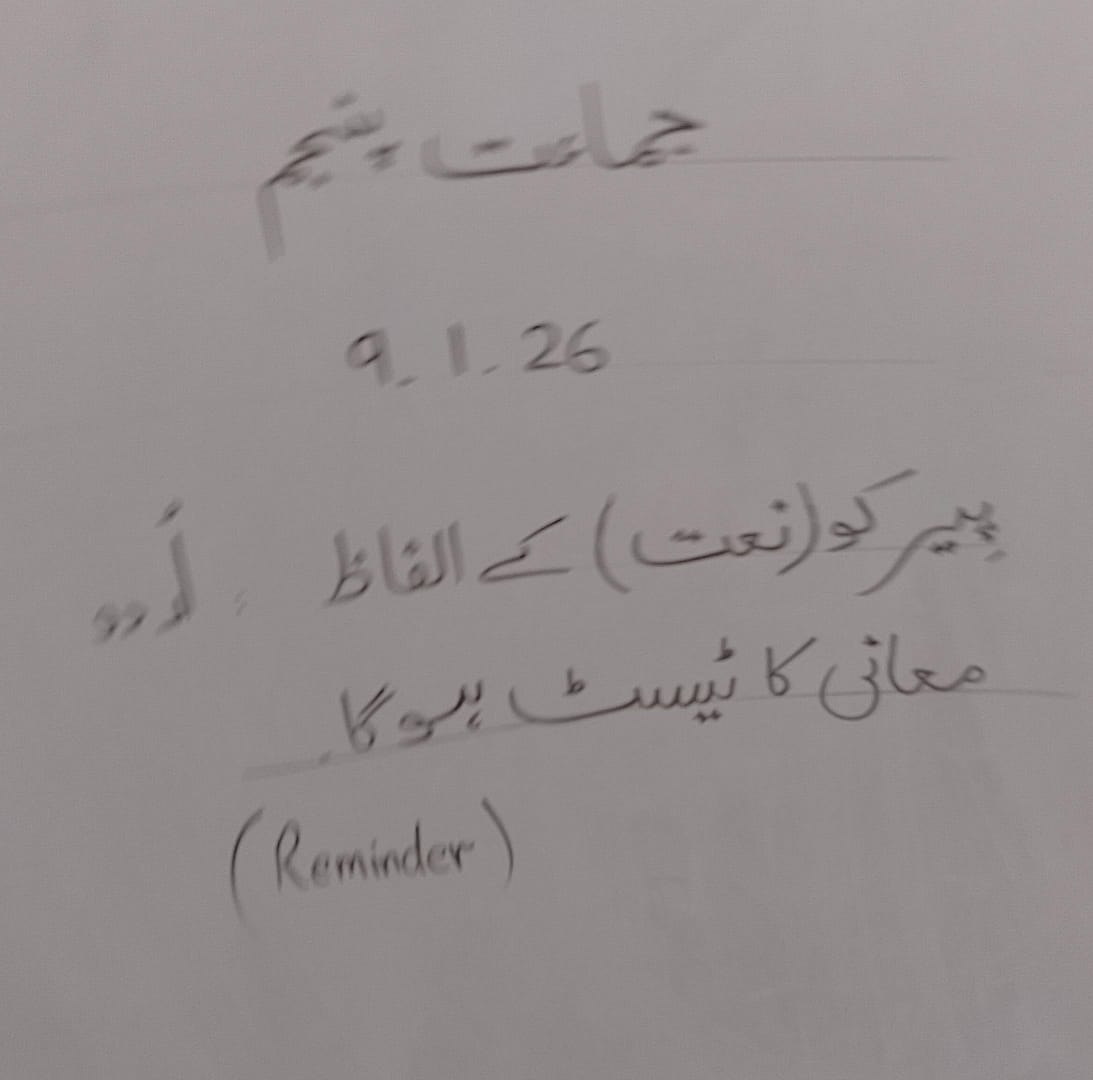 جماعت پنجم
9.1.26
اُردو: پیر کو (نعت) کے الفاظ
معانی کا ٹیسٹ ہوگا۔
(Reminder)